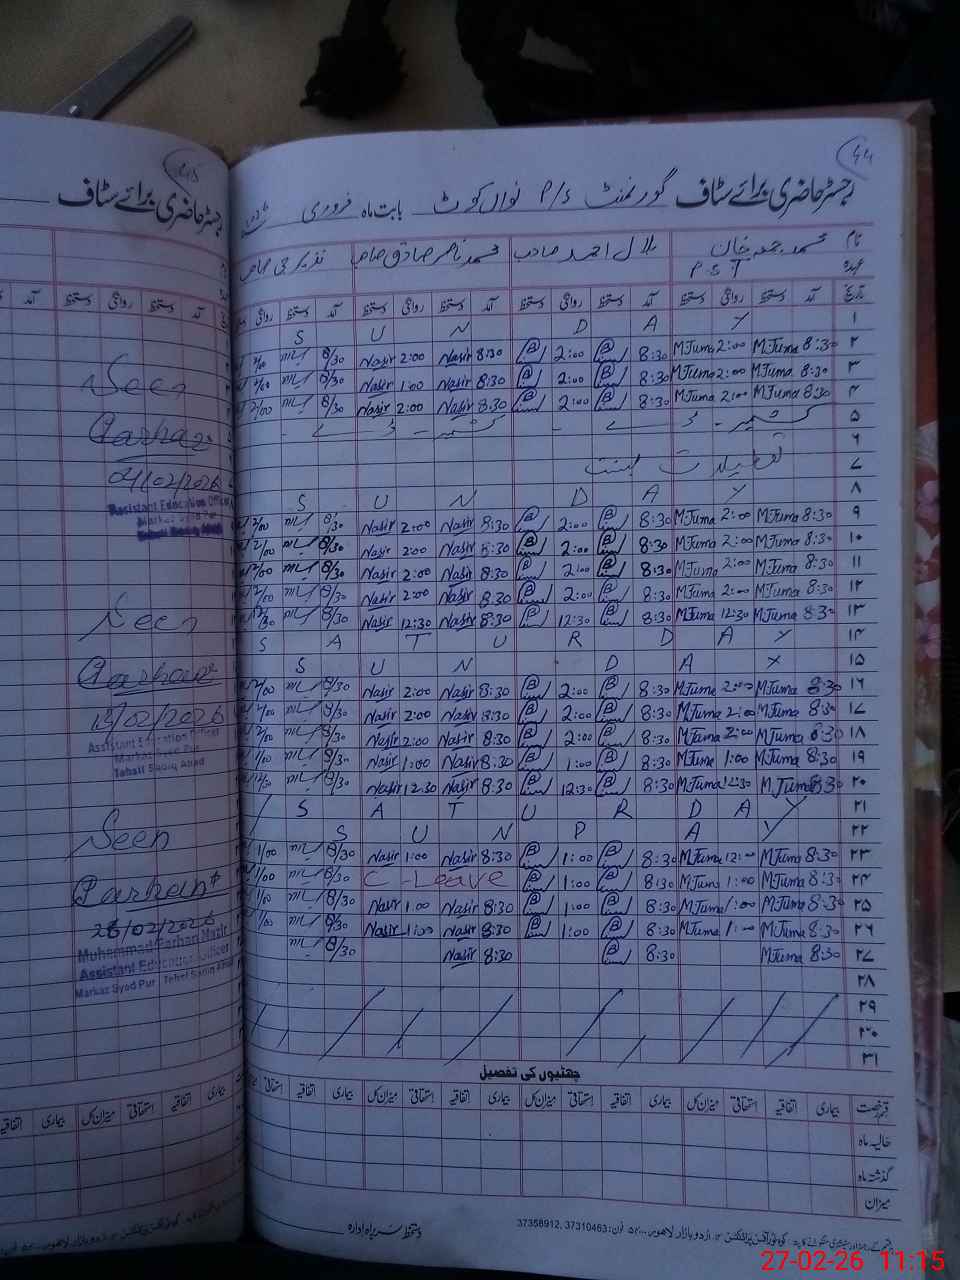 45
رجسٹر حاضری برائے سٹاف
Seen
Farhan
04/02/2026
Assistant Education Officer
Markaz Syed Pur
Tehsil Sadiq Abad
Seen
Farhan
13/02/2026
Assistant Education Officer
Markaz Syed Pur
Tehsil Sadiq Abad
Seen
Farhan
26/02/2026
Muhammad Farhan Nazir
Assistant Education Officer
Markaz Syed Pur Tehsil Sadiq Abad
44
رجسٹر حاضری برائے سٹاف گورنمنٹ P/S نواں کوٹ بابت ماہ فروری
نام محمد جمعہ خان بلال احمد صاحب محمد ناصر صادق صاحب
عہدہ P.S.T
تاریخ آمد دستخط روانگی دستخط آمد دستخط روانگی دستخط آمد دستخط روانگی دستخط آمد دستخط روانگی
۱ S U N D A Y
۲ 8:30 M.Juma 2:00 M.Juma 8:30 2:00 8:30 Nasir 2:00 Nasir 8/30 2/00
۳ 8:30 M.Juma 2:00 M.Juma 8:30 2:00 8:30 Nasir 1:00 Nasir 8/30 2/00
۴ 8:30 M.Juma 2:00 M.Juma 8:30 2:00 8:30 Nasir 2:00 Nasir 8/30 2/00
۵ کشمیر - ڈے - کشمیر - ڈے -
۶
۷ تعطیلات
۸ S U N D A Y
۹ 8:30 M.Juma 2:00 M.Juma 8:30 2:00 8:30 Nasir 2:00 Nasir 8/30 2/00
۱۰ 8:30 M.Juma 2:00 M.Juma 8:30 2:00 8:30 Nasir 2:00 Nasir 8/30 2/00
۱۱ 8:30 M.Juma 2:00 M.Juma 8:30 2:00 8:30 Nasir 2:00 Nasir 8/30 2/00
۱۲ 8:30 M.Juma 2:00 M.Juma 8:30 2:00 8:30 Nasir 2:00 Nasir 8/30 2/00
۱۳ 8:30 M.Juma 12:30 M.Juma 8:30 12:30 8:30 Nasir 12:30 Nasir 8/30 12/30
۱۴ S A T U R D A Y
۱۵ S U N D A Y
۱۶ 8:30 M.Juma 2:00 M.Juma 8:30 2:00 8:30 Nasir 2:00 Nasir 8/30 2/00
۱۷ 8:30 M.Juma 2:00 M.Juma 8:30 2:00 8:30 Nasir 2:00 Nasir 8/30 2/00
۱۸ 8:30 M.Juma 2:00 M.Juma 8:30 2:00 8:30 Nasir 2:00 Nasir 8/30 2/00
۱۹ 8:30 M.Juma 1:00 M.Juma 8:30 1:00 8:30 Nasir 1:00 Nasir 8/30 1/00
۲۰ 8:30 M.Juma 12:30 M.Juma 8:30 12:30 8:30 Nasir 12:30 Nasir 8/30
۲۱ S A T U R D A Y
۲۲ S U N D A Y
۲۳ 8:30 M.Juma 12:00 M.Juma 8:30 1:00 8:30 Nasir 1:00 Nasir 8/30 1/00
۲۴ 8:30 M.Juma 1:00 M.Juma 8:30 1:00 C-Leave 8/30 1/00
۲۵ 8:30 M.Juma 1:00 M.Juma 8:30 1:00 8:30 Nasir 1:00 Nasir 8/30 1/00
۲۶ 8:30 M.Juma 1:00 M.Juma 8:30 1:00 8:30 Nasir 1:00 Nasir 8/30 1/00
۲۷ 8:30 M.Juma 8:30 8:30 Nasir 8/30
۲۸
۲۹
۳۰
۳۱
چھٹیوں کی تفصیل
قسم رخصت بیماری اتفاقیہ استحقاقی میزان کل بیماری اتفاقیہ استحقاقی میزان کل بیماری اتفاقیہ استحقاقی میزان کل بیماری اتفاقیہ استحقاقی
حالیہ ماہ
گذشتہ ماہ
میزان
دستخط سربراہ ادارہ
اردو بازار لاہور فون: 37310463, 37358912
27-02-26 11:15